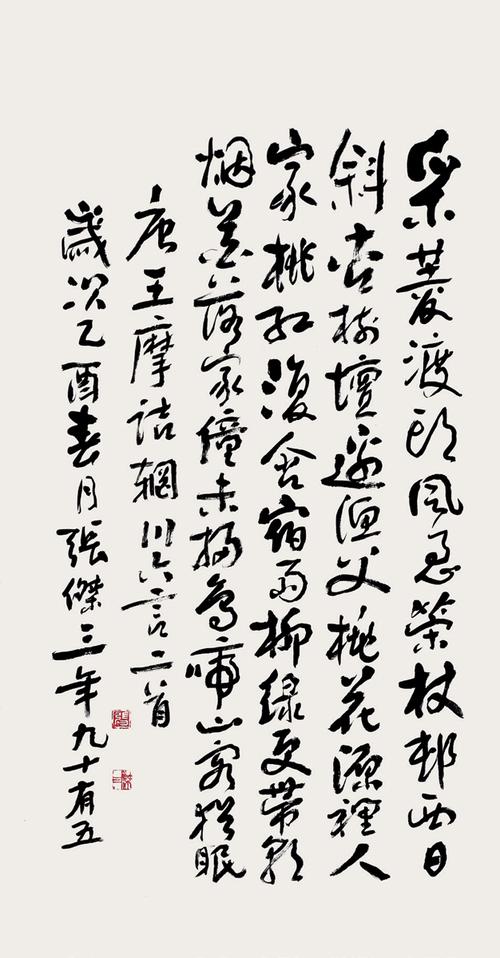 采菱渡頭風急策杖邨西日
斜杏樹壇邊漁父桃花源裡人
家桃紅復含宿雨柳綠更帶朝
烟花落家僮未掃鳥啼山客猶眠
唐王摩詰輞川六言二首
歲次乙酉春月張傑三年九十有五